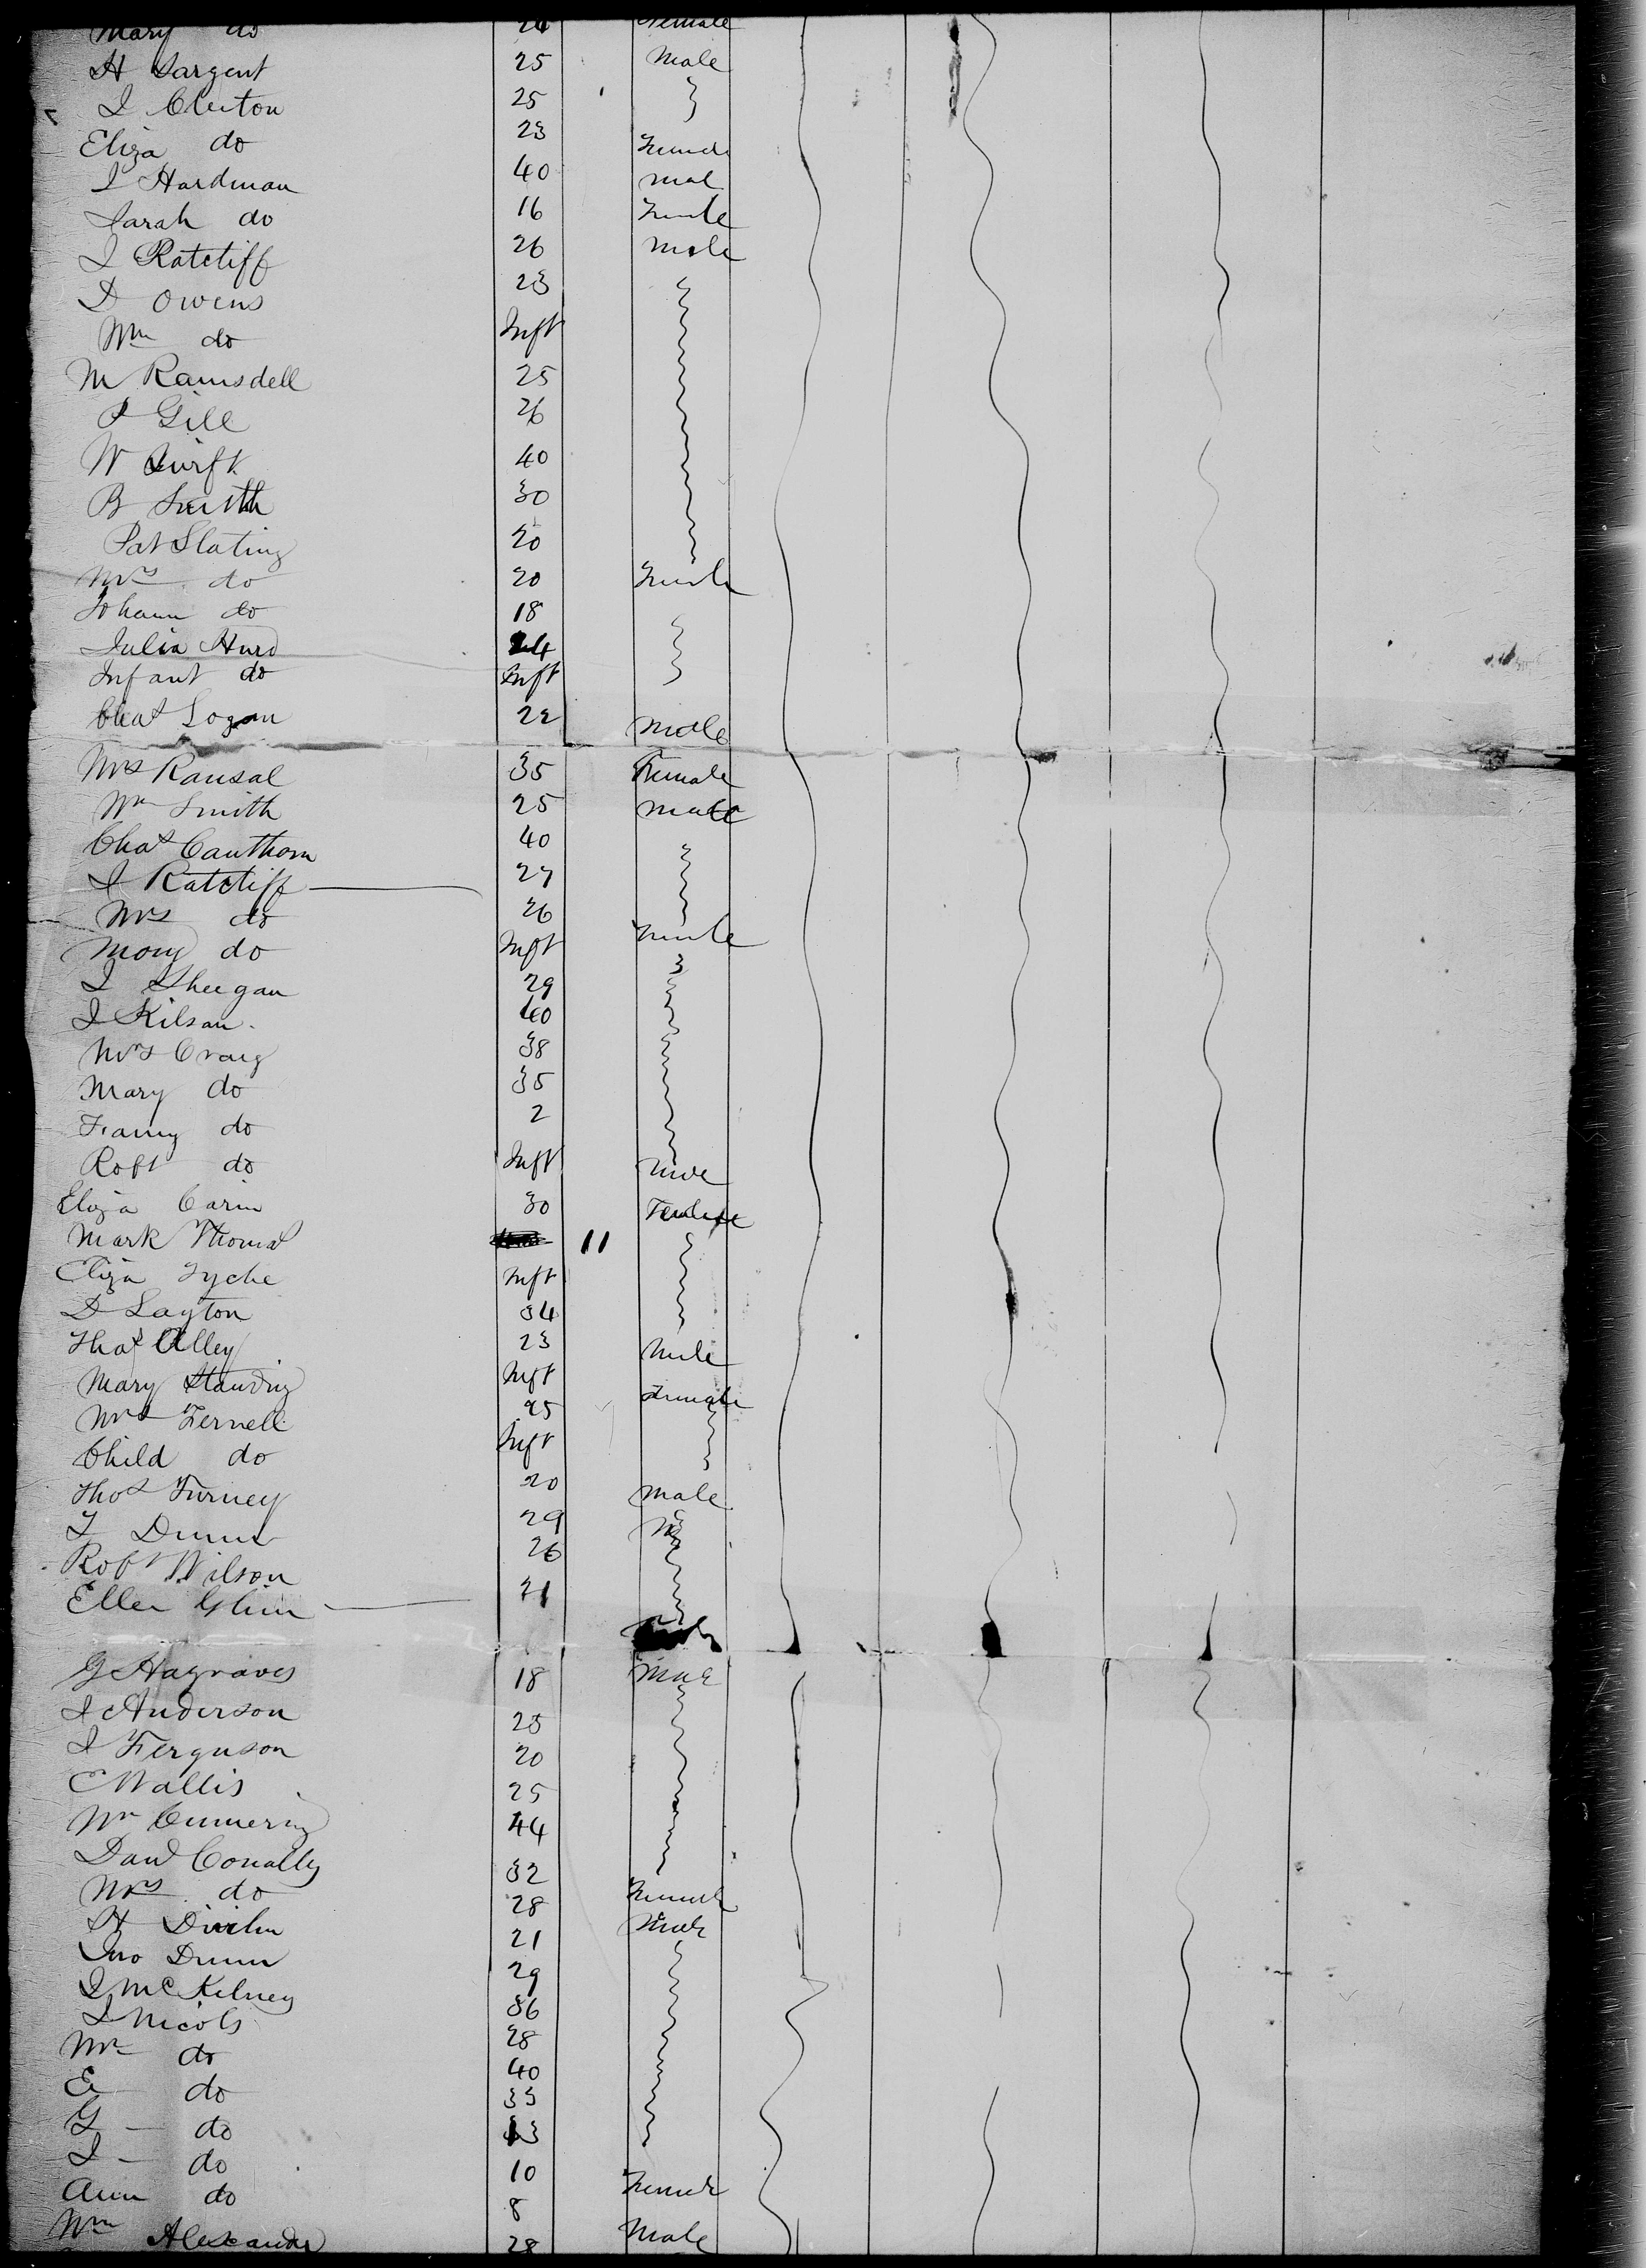 Mary do 24 Female
H Sargent 25 Male
I Cleiton 25
Eliza do 23 Female
I Hardman 40 Mal
Sarah do 16 Female
I Ratcliff 26 Male
D Owens 23
Wm do Inft
M Ramsdell 25
P Gill 26
W Swift 40
B Smith 30
Pat Slating 20
Mrs do 20 Female
Johann do 18
Julia Hurd 24
Infant do Inft
Chas Logan 22 Male
Mrs Ransal 35 Female
Wm Smith 25 Male
Chas Cauthorn 40
I Ratcliff 27
Mrs do 26
Mary do Inft Female
I Sheegan 29
I Kilsan 40
Mrs Craig 38
Mary do 35
Fanny do 2
Robt do Inft Male
Eliza Carin 30 Female
Mark Thomas 11
Eliza Tyche Inft
D Layton 34
Thos Alley 23 Male
Mary Standing Inft
Mrs Fernell 25 Female
Child do Inft
Thos Furney 20 Male
T Dunn 29
Robt Wilson 26
Ellen Glinn 21
G Hagraves 18 Male
I Anderson 25
I Ferguson 20
C Wallis 25
Wm Cumering 44
Davd Conally 32
Mrs do 28 Female
H Divilin 21 Male
Jno Dunn 29
I McKelney 36
I Nicols 28
Mr do 40
E do 35
G - do 13
I - do 10
Ann do 8 Female
Wm Alexander 28 Male